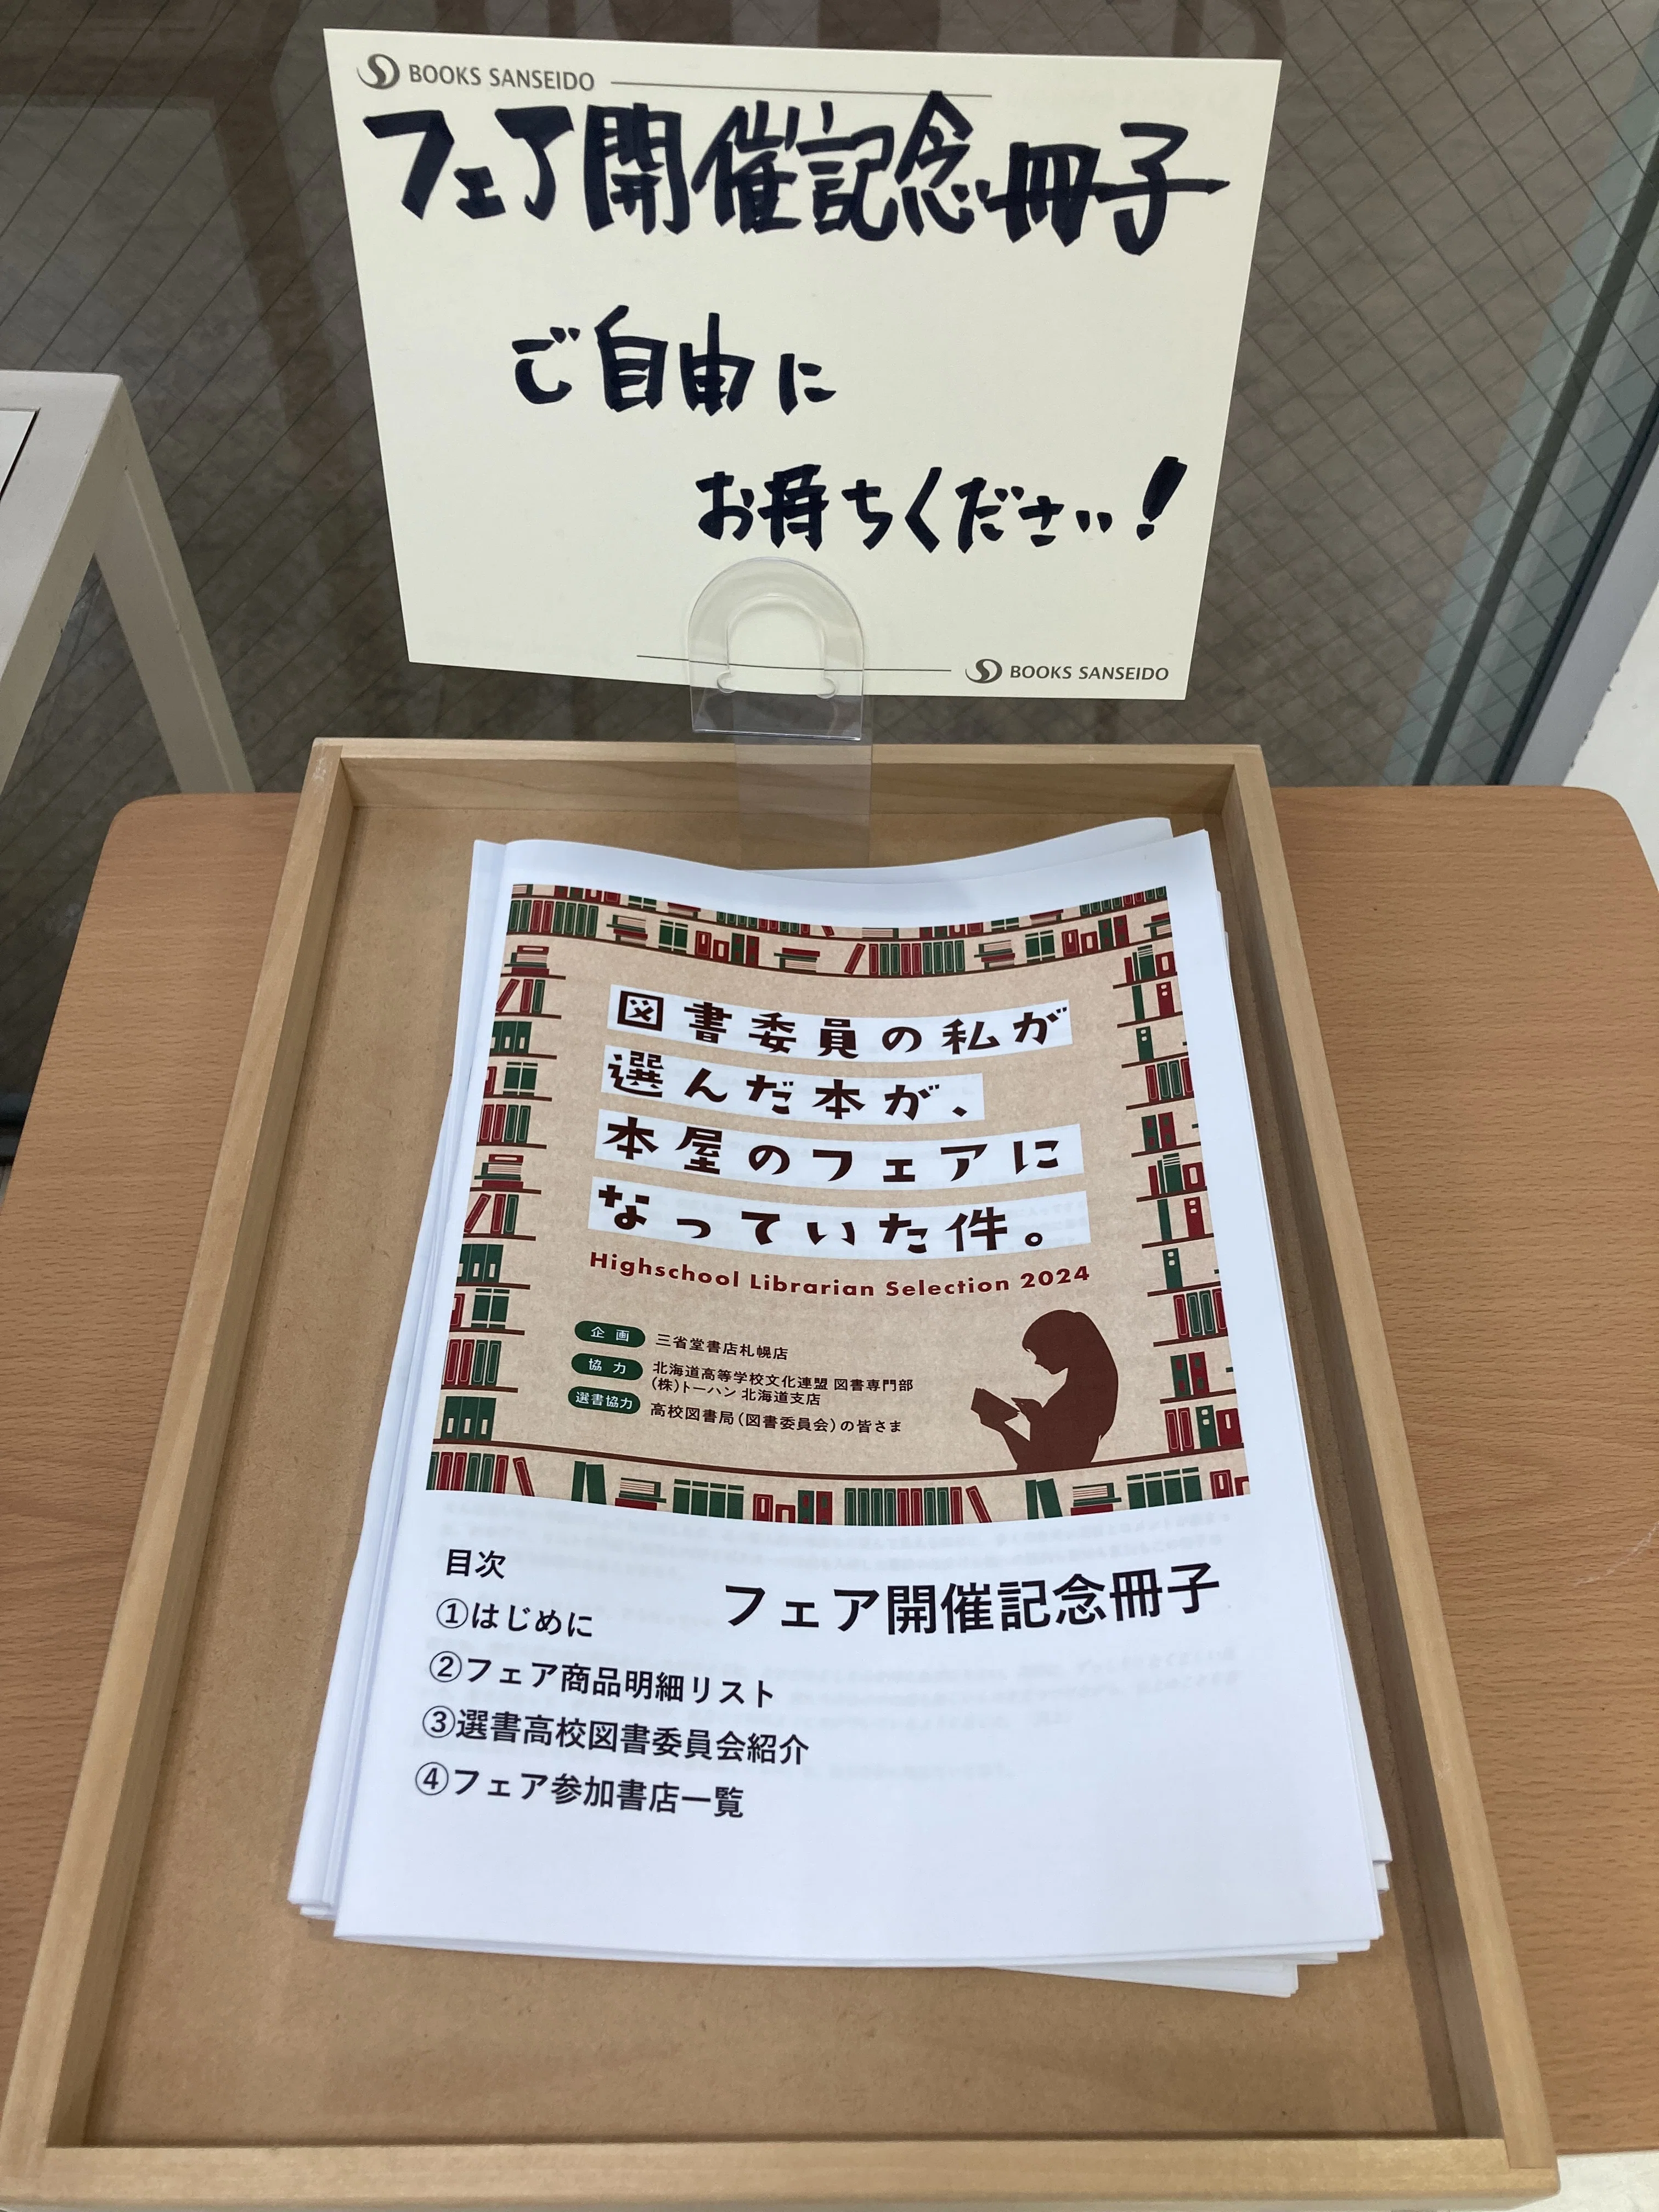 BOOKS SANSEIDO
フェア開催記念冊子
ご自由に
お持ちください!
BOOKS SANSEIDO
図書委員の私が
選んだ本が、
本屋のフェアに
なっていた件。
Highschool Librarian Selection 2024
企画 三省堂書店札幌店
協力 北海道高等学校文化連盟 図書専門部
(株)トーハン 北海道支店
選書協力 高校図書局(図書委員会)の皆さま
フェア開催記念冊子
目次
①はじめに
②フェア商品明細リスト
③選書高校図書委員会紹介
④フェア参加書店一覧